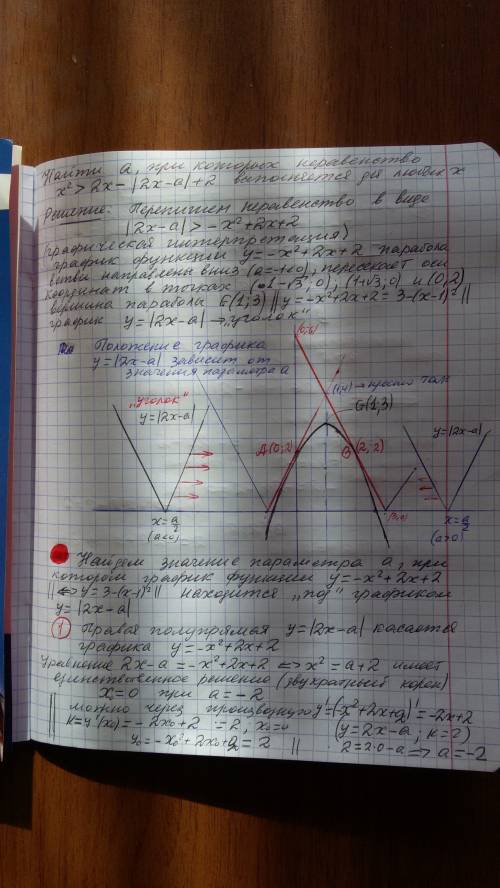 Найти a, при которых неравенство
x² > 2x - |2x-a| + 2 выполняется для любых x
Решение: Перепишем неравенство в виде
|2x-a| > -x²+2x+2
(графическая интерпретация)
график функции y=-x²+2x+2 парабола
ветви направлены вниз (a=-1<0), пересекает оси
координат в точках (1-√3; 0), (1+√3; 0) и (0; 2)
вершина параболы G(1; 3) || y=-x²+2x+2 = 3-(x-1)² ||
график y=|2x-a| → „уголок"
(0; 6)
Положение графика
y=|2x-a| зависит от
значения параметра a
(1; 4) →
G(1; 3)
„Уголок"
y=|2x-a|
y=|2x-a|
A(0; 2)
B(2; 2)
(3; 0)
x=a/2
(a<0)
x=a/2
(a>0)
Найдем значение параметра a, при
котором график функции y=-x²+2x+2
|| <=> y=3-(x-1)² || находится „под" графиком
y=|2x-a|
1 Правая полупрямая y=|2x-a| касается
графика y=-x²+2x+2
Уравнение 2x-a=-x²+2x+2 <=> x²=a+2 имеет
единственное решение (двухкратный корень)
x=0 при a=-2
|| можно через производную y'=(-x²+2x+2)'=-2x+2
k=y'(x₀)=-2x₀+2 =2, x₀=0 (y=2x-a; k=2)
y₀=-x₀²+2x₀+2=2 || 2=2·0-a => a=-2